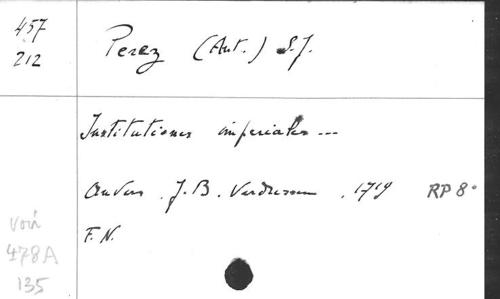 457
212
Perez (Ant.) S.J.
Institutiones imperiales ...
Anvers. J.B. Verdussen. 1719 RP 8°
F.N.
voir
478A
135